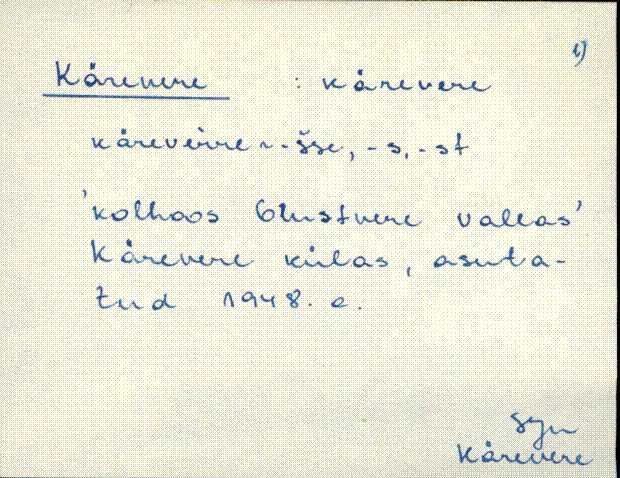 1)
Kårevere : kårevere
kårevèirre ~ -šše, -s, -st
'kolhoos Olustvere vallas'
Kårevere külas, asuta-
tud 1948. a.
Syn
Kårevere